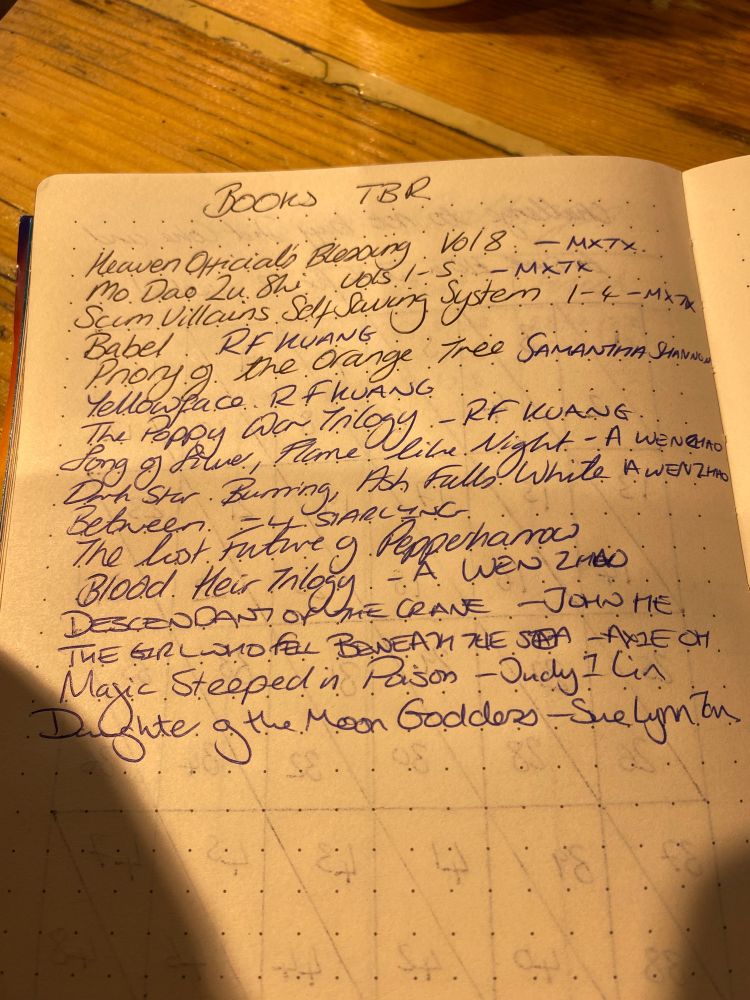 BOOKS TBR
Heaven Officials Blessing Vol 8 - MXTX
Mo Dao Zu Shi vols 1-5 - MXTX
Scum Villains Self Saving System 1-4 - MXTX
Babel RF KUANG
Priory of the Orange Tree SAMANTHA SHANNON
Yellowface RF KUANG
The Poppy War Trilogy - RF KUANG
Song of Silver, Flame like Night - A WEN ZHAO
Dark Star Burning, Ash Falls White A WEN ZHAO
Between
The lost Future of Pepperharrow
Blood Heir Trilogy - A WEN ZHAO
DESCENDANT OF THE CRANE - JOHN HE
THE GIRL WHO FELL BENEATH THE SEA - AXIE OH
Magic Steeped in Poison - Judy I Lin
Daughter of the Moon Goddess - Sue Lynn Tan
28 30 32 34
37 39 41 43 45 47
38 40 42 44 46 48